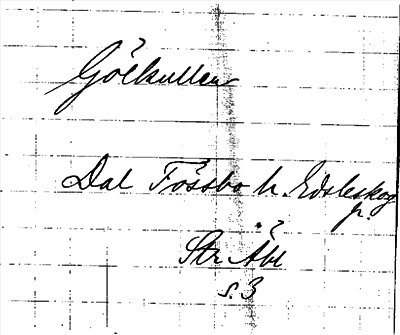 Gökullen
Dal Tössbo h. Edsleskog
p.
Str Åbl
s. 3